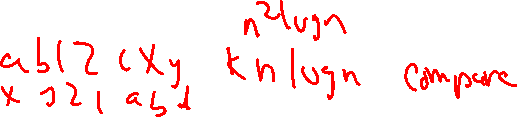 n²logn
ab12cxy knlogn compare
x 321 abd